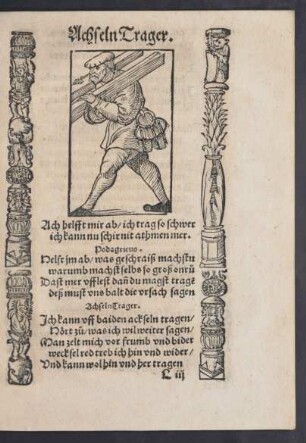 Achseln Trager.
Ach helfft mir ab/ ich trag so schwer
ich kann nu schir nit athmen mer.
Podagricus.
Helft jm ab/ was geschraiß machstu
warumb machst selbs so groß onrů
Dast mer vfflest dañ du magst tragẽ
deß must vns balt die vrsach sagen
Achseln Trager.
Ich kann vff baiden achseln tragen/
Hört zů/ was ich wil weiter sagen/
Man zelt mich vor frumb vnd bider
wechsel red treib ich hin vnd wider/
Vnd kann wol hin vnd her tragen
C iij